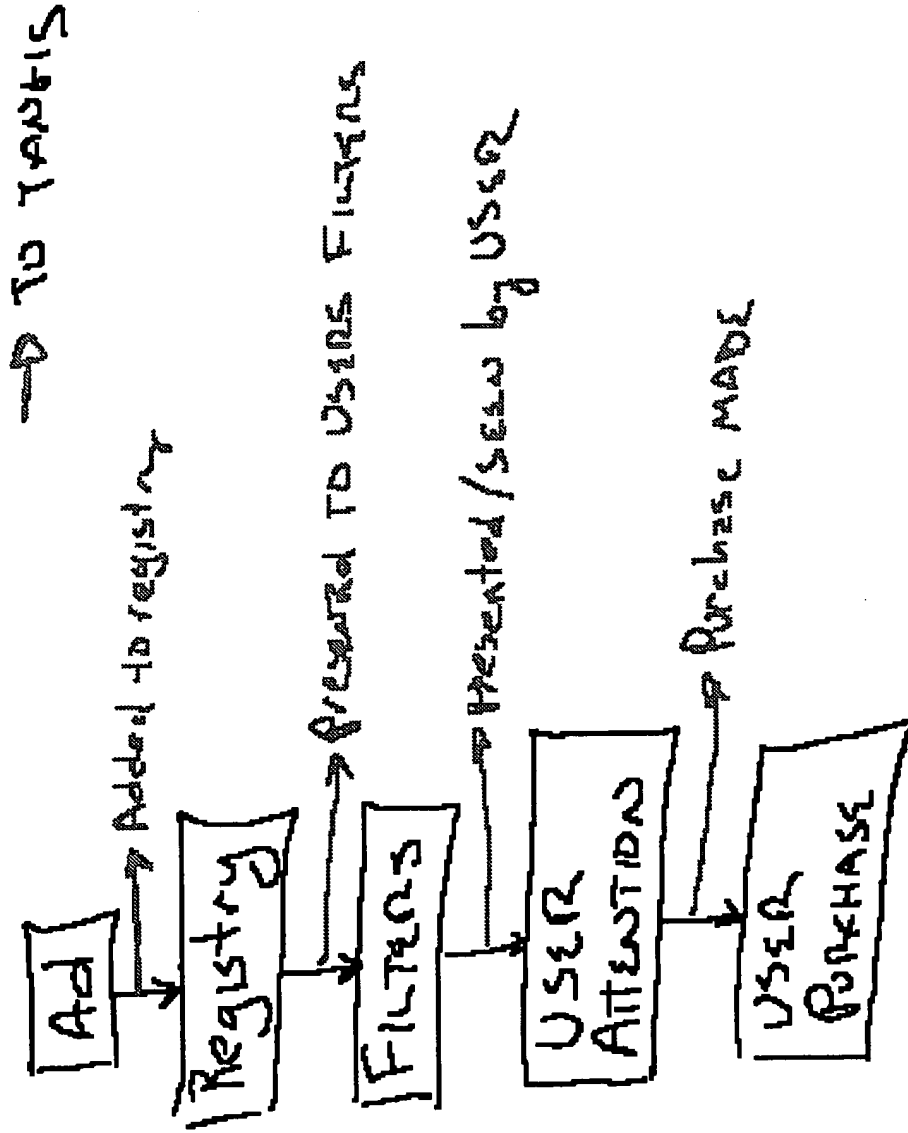 → TO TANGIS
Ad
Added to registry
Registry
Presented TO USERS FILTERS
FILTERS
Presented/seen by USER
USER
ATTENTION
Purchase MADE
USER
PURCHASE